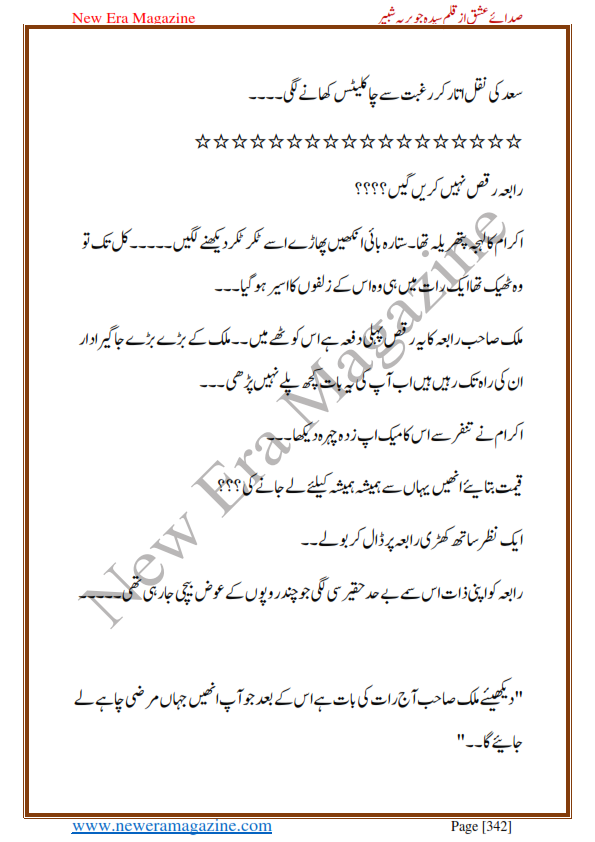 New Era Magazine صدائے عشق از قلم سیدہ جویریہ شبیر
سعد کی نقل اتار کر رغبت سے چاکلیٹس کھانے لگی۔۔۔۔
☆☆☆☆☆☆☆☆☆☆☆☆☆☆☆☆☆☆
رابعہ رقص نہیں کریں گیں؟؟؟؟
اکرام کا لہجہ پتھریلہ تھا۔ستارہ بائی انکھیں پھاڑے اسے ٹکر ٹکر دیکھنے لگیں۔۔۔۔۔کل تک تو
وہ ٹھیک تھا ایک رات میں ہی وہ اس کے زلفوں کا اسیر ہو گیا۔۔۔
ملک صاحب رابعہ کا یہ رقص پہلی دفعہ ہے اس کوٹھے میں۔۔ملک کے بڑے بڑے جاگیرادار
ان کی راہ تک رہیں ہیں اب آپ کی یہ بات کچھ پلے نہیں پڑھی۔۔۔
اکرام نے تنفر سے اس کا میک اپ زدہ چہرہ دیکھا۔۔۔
قیمت بتایئے انھیں یہاں سے ہمیشہ ہمیشہ کیلئے لے جانے کی؟؟؟
ایک نظر ساتھ کھڑی رابعہ پر ڈال کر بولے۔۔
رابعہ کو اپنی ذات اس سمے بے حد حقیر سی لگی جو چند روپوں کے عوض بیچی جا رہی تھی۔۔۔۔۔
"دیکھیئے ملک صاحب آج رات کی بات ہے اس کے بعد جو آپ انھیں جہاں مرضی چاہے لے
جایئے گا۔۔"
New Era Magazine
www.neweramagazine.com Page [342]